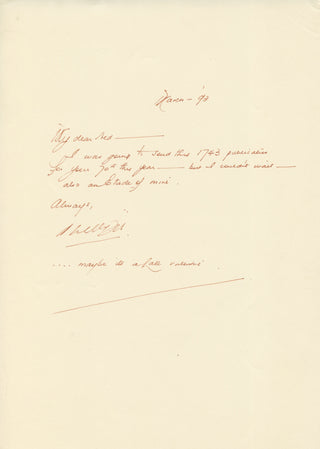 My dear Ned —
I was going to send this 1743 publication
for your 70th this year — but I couldn't wait —
also an Etude of mine.
Always,
.... maybe it's a late valentine